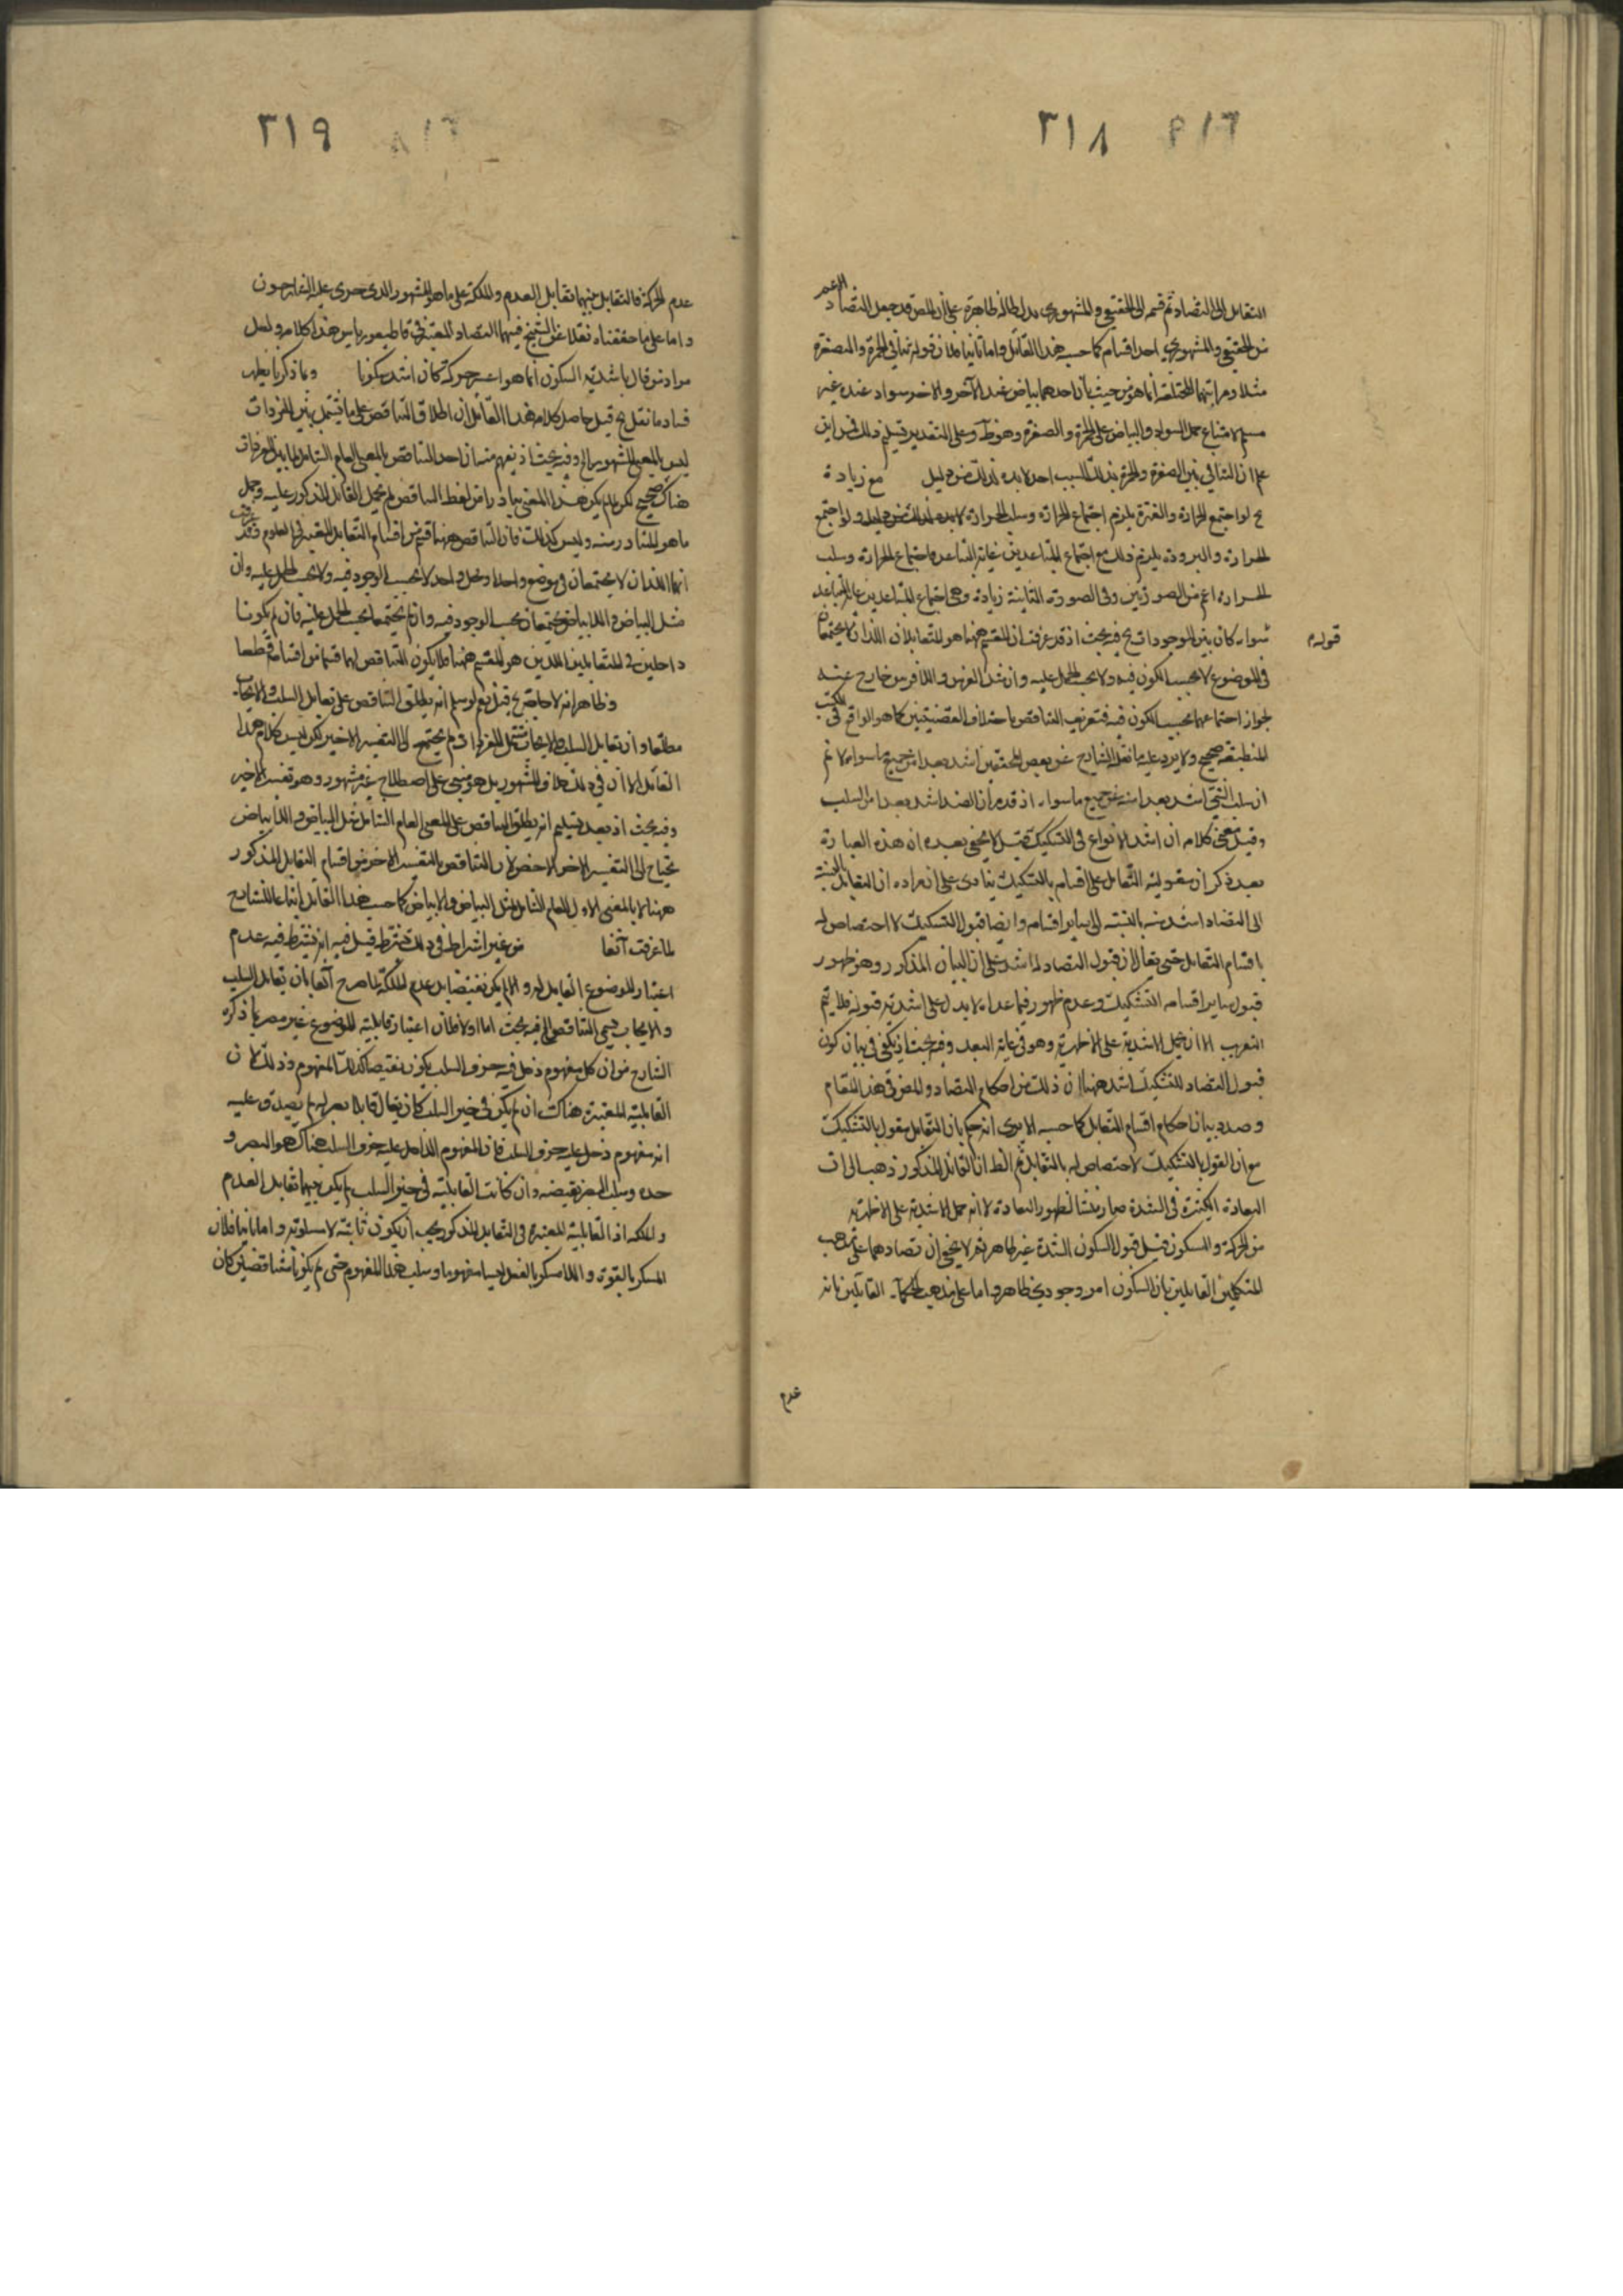 ٣١٨
التقابل الى التضاد ثم قسمه الى الحقيقي والمشهوري بدل ابطاله ظاهرة على ان المص قد جعل التضاد الاعم
من الحقيقي والمشهوري احد اقسام كما حسبه هذا القائل واما ثانيا فلان قوله تنافي الحمرة والصفرة
مثلا ومراتبهما المختلفة انما هو من حيث بان احدهما بياض عند الآخر والاخر سواد عنده غير
مسلم لامتناع حمل السواد والبياض على الحمرة والصفرة وهو ظ وعلى التقدير تسليم ذلك فمن اين
علم ان التنافي بين الصفرة والحمرة بذلك السبب احد لابد لذلك من دليل مع زيادة
ح لو اجتمع الحرارة والفترة يلزم اجتماع الحرارة وسلب الحرارة لابد لذلك من دليل ولو اجتمع
الحرارة والبرودة يلزم ذلك مع اجتماع المتباعدين غاية التباعد فاجتماع الحرارة وسلب
الحرارة اعم من الصورتين وفى الصورة الثانية زيادة وهى اجتماع المتباعدين غاية التباعد
قوله
سواء كان بين الموجودات ح فيه بحث اذ قد عرفت ان المقسم ههنا هو المتقابلان اللذان لا يجتمعان
في الموضوع لا بحسب الكون فيه ولا بحسب الحمل عليه وان مثل الفرس واللافرس خارج عنه
لجواز اجتماعهما بحسب الكون فيه فتعريف التناقض باختلاف القضيتين كما هو الواقع في الكتب
المنطقية صحيح ولا يرد عليه ما نقل الشارح عن بعض المحققين اشد بعدا من جميع ما سواه لا ثم
ان سلب الشئ اشد بعدا منه عن جميع ما سواه اذ قد مر ان الضد اشد بعدا من السلب
وقيل معنى كلامه ان اشد الانواع في التشكيك قيل لا يخفى بعده ان هذه العبارة
بعد ذكر ان مقولية التقابل على اقسام بالتشكيك ينادى على ان مراده ان التقابل بالنسبة
الى التضاد اشد منه بالنسبة الى سائر اقسامه وايضا قبول التشكيك لا اختصاص له
باقسام التقابل حتى يقال ان قبول التضاد لها اشد على ان البيان المذكور وهو ظهور
قبول سائر اقسامه التشكيك وعدم ظهور فيما عداه لا يدل على اشدية قبوله فلا يتم
التقريب الا ان يحمل الاشدية على الاظهرية وهو في غاية البعد وفيه بحث اذ يكفي في بيان كون
قبول التضاد للتشكيك اشد ههنا ان ذلك من احكام التضاد والمص في هذا المقام
وصدد بيان احكام اقسام التقابل كما حسبه الا يرى انه حكم بان التقابل مقول بالتشكيك
مع ان القول بالتشكيك لا اختصاص له بالتقابل ثم الظ ان القائل المذكور ذهب الى ان
البعادة الكثيرة في الشدة صار منشأ لظهور البعادة لا انه حمل الاشدية على الاظهرية
من الحركة والسكون قيل قبول السكون الشدة غير ظاهر ثم لا يخفى ان تضادهما على مذهب
المتكلمين القائلين بان السكون امر وجودي ظاهر واما على مذهب الحكماء القائلين بانه
عدم
٣١٩
عدم الحركة فالتقابل بينهما تقابل العدم والملكة على ما هو المشهور الذى جرى عليه الشارحون
واما على ما حققناه نقلا عن الشيخ فبينهما التضاد المعتبر في قاطيغورياس هذا كلامه ولعل
مراد من قال باشدية السكون انما هو اعسر حركة كان اشد سكونا وبما ذكرنا يظهر
فساد ما نقل ح قيل حاصل كلام هذا القائل ان اطلاق التناقض على ما يشتمل بين المفردات
ليس بالمعنى المشهور الخ وفيه بحث اذ يفهم منه ان احد التناقض بالمعنى العام الشامل لما بين المفردات
هناك صحيح لكن لما لم يكن هذا المعنى يتبادر من لفظ التناقض لم يحمل القائل المذكور عليه وحمل
ما هو المتبادر منه وليس كذلك فان التناقض ههنا قسم من اقسام التقابل المعتبر في العلوم وقد عرفت
انهما اللذان لا يجتمعان في موضوع واحد ومحل واحد لا بحسب الوجود فيه ولا بحسب الحمل عليه وان
مثل البياض واللابياض يجتمعان بحسب الوجود فيه وان لم يجتمعا بحسب الحمل عليه فان لم يكونا
داخلين في المتقابلين اللذين هو المقسم ههنا فلا يكون التناقض لهما قسما من اقسامه قطعا
وظاهر انه لا حاجة ح قيل نعم لو سلم انه يطلق التناقض على تقابل السلب والايجاب
مطلقا وان تقابل السلب والايجاب يشتمل المفردات لم يحتج الى التفسير الاخير لكن ليس كلام هذا
القائل الا ان في ذلك خلاف المشهور بل هو مبني على اصطلاح غير مشهور وهو تفسير الاخير
وفيه بحث اذ بعد تسليم انه يطلق التناقض على المعنى العام الشامل مثل البياض واللابياض
يحتاج الى التفسير الاخر الاخص لان التناقض بالتفسير الاخر من اقسام التقابل المذكور
ههنا لا بالمعنى الاول العام الشامل لمثل البياض واللابياض كما حسبه هذا القائل اتباعا للشارح
لما عرفت آنفا من غير اشتراط في ذلك يشترط قيل فيه انه يشترط فيه عدم
اعتبار الموضوع القابل له والا لم يكن نقيضا بل عدم الملكة لما صرح آنفا بان تقابل السلب
والايجاب يسمى التناقض الخ فيه بحث اما اولا فلان اعتبار قابلية الموضوع غير مضر بما ذكره
الشارح من ان كل مفهوم دخل فيه حرف السلب يكون نقيضا لذلك المفهوم وذلك لان
القابلية المعتبرة هناك ان لم يكن في خبر السلب كان يقال قابلا بصر له لم يصدق عليه
انه مفهوم دخل عليه حرف السلب فان المفهوم الداخل عليه حرف السلب هناك هو البصر و
حده وسلب البصر نقيضه وان كانت القابلية في حيز السلب لم يكن بينهما تقابل العدم
والملكة اذ القابلية المعتبرة في التقابل المذكور يجب ان يكون ثابتة لا مسلوبة واما ثانيا فلان
المسكر بالقوة واللامسكر بالفعل ليسا مفهوما وسلب هذا المفهوم حتى لم يكونا متناقضين كان